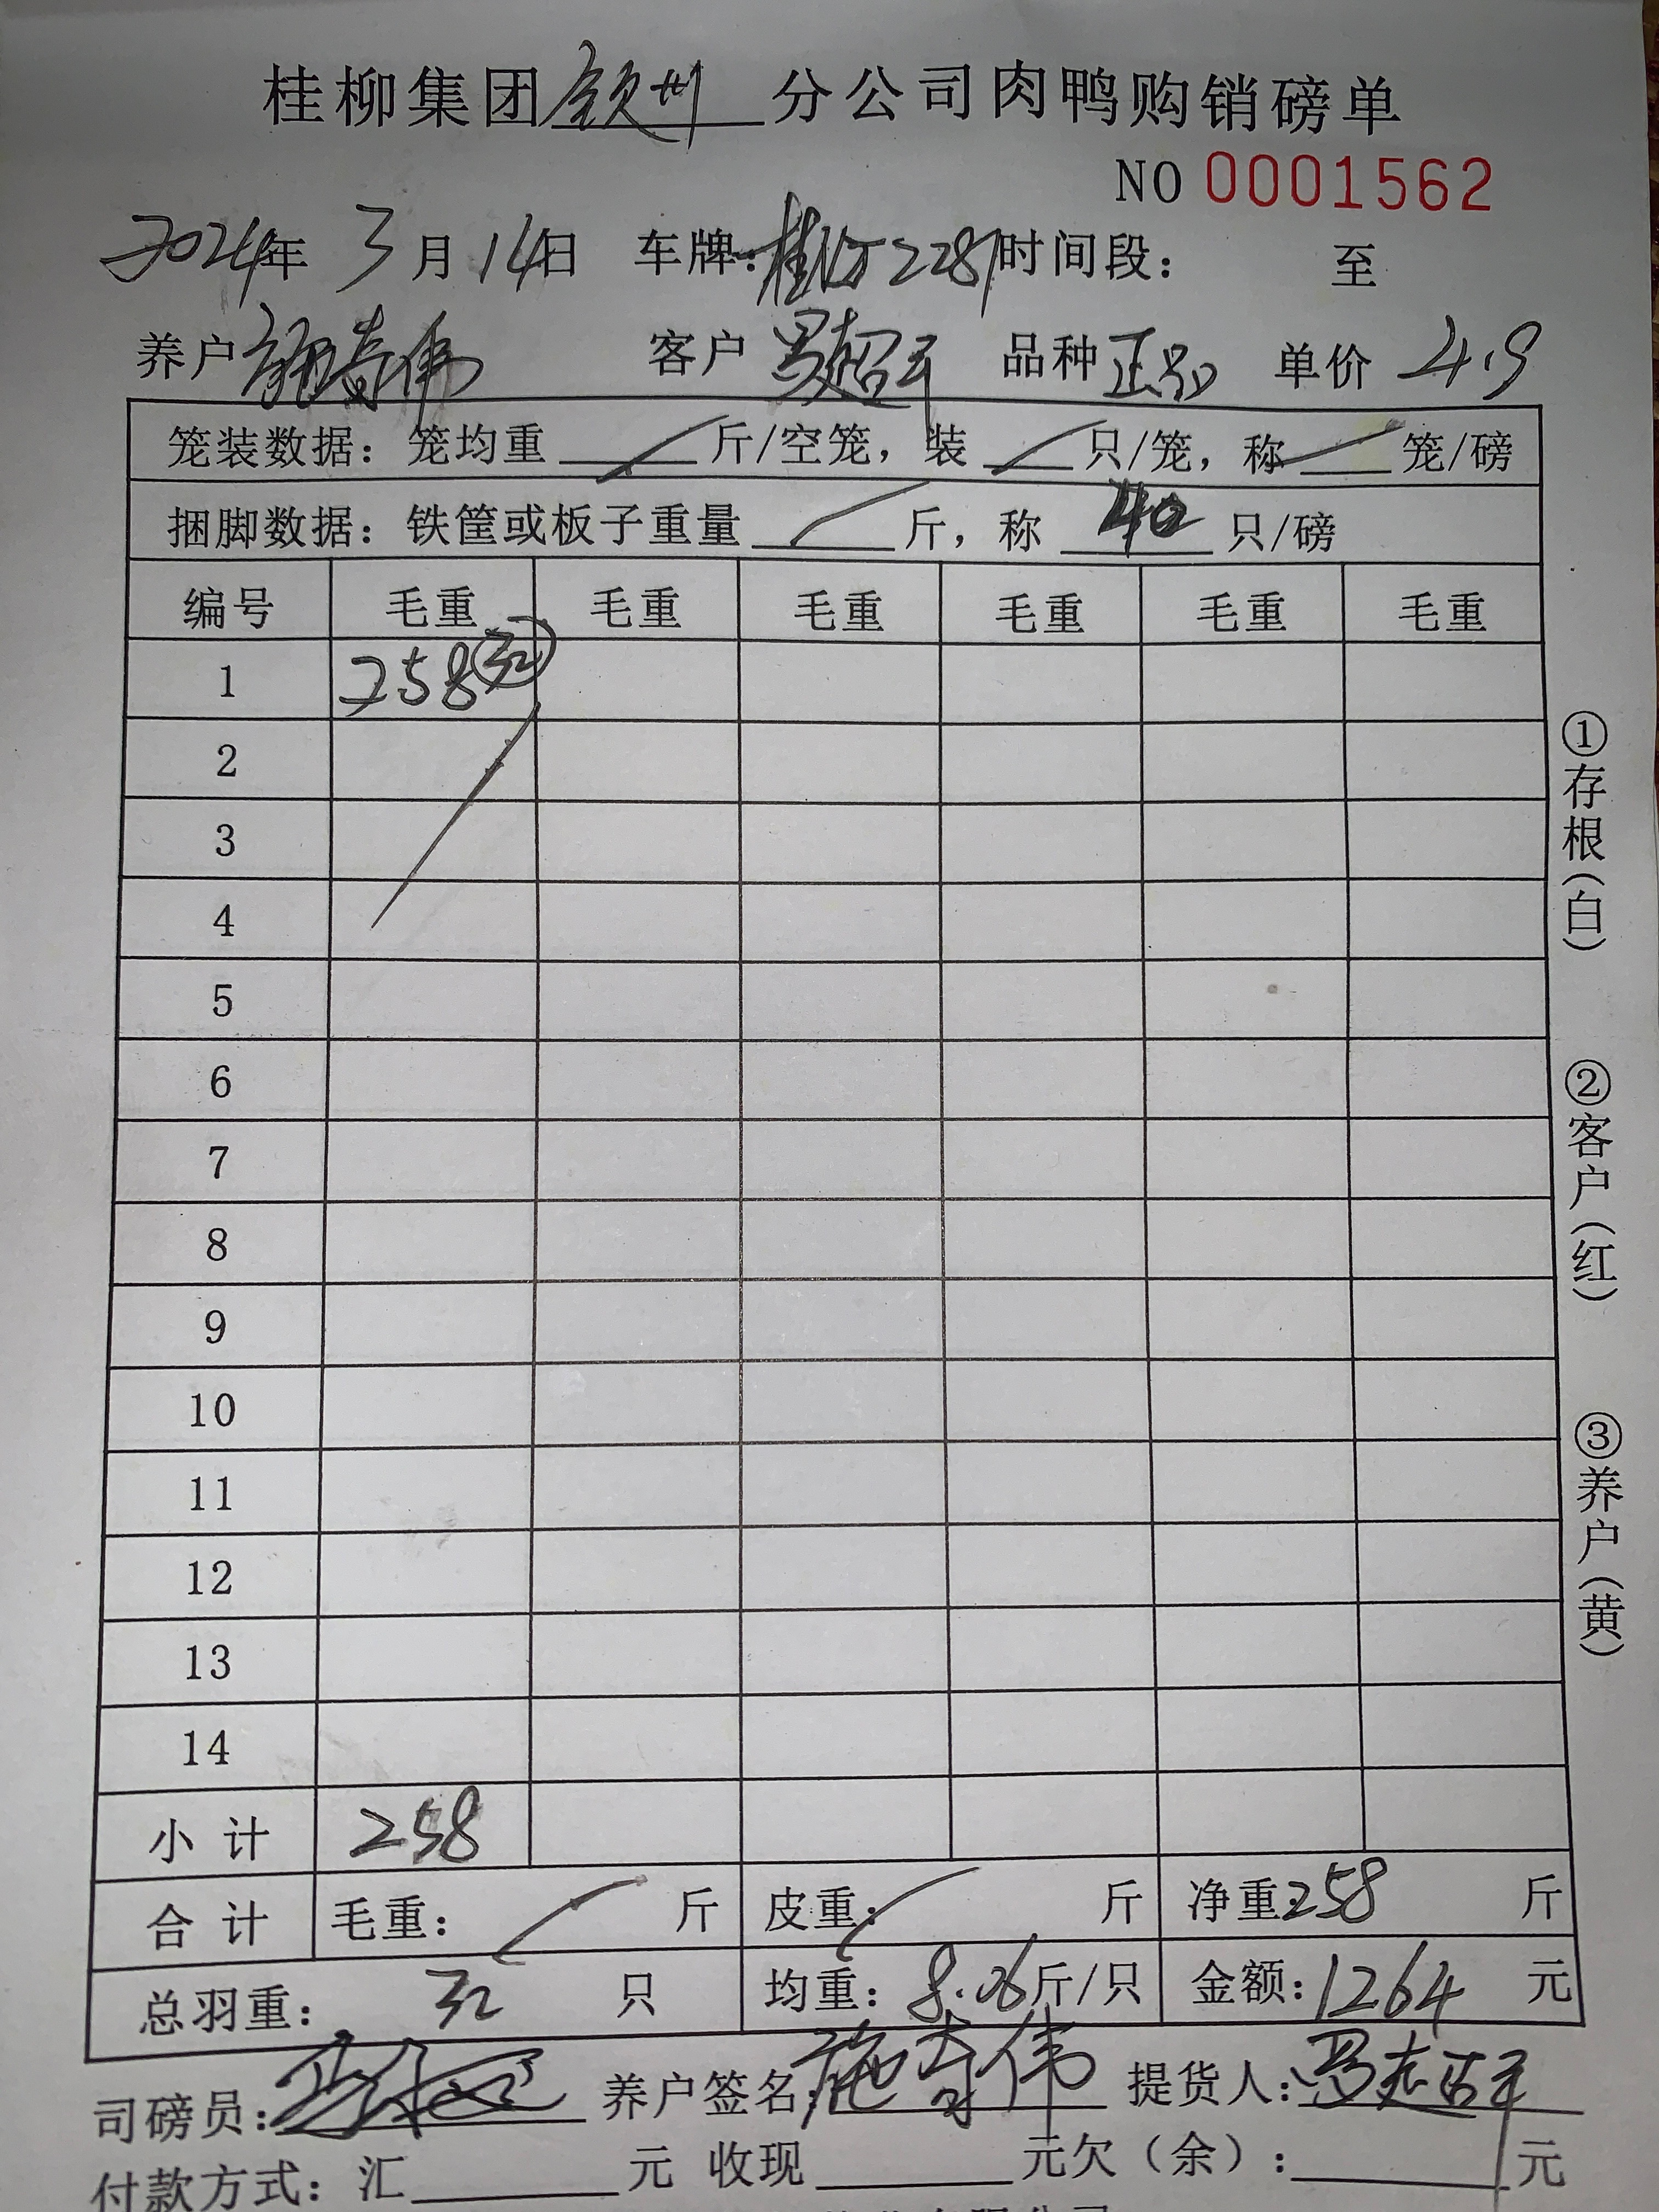 桂柳集团钦州分公司肉鸭购销磅单
NO 0001562
2024年 3月14日 车牌: 时间段: 至
养户 客户 罗超平 品种 正品 单价 4.9
笼装数据: 笼均重 斤/空笼, 装 只/笼, 称 笼/磅
捆脚数据: 铁筐或板子重量 斤, 称 40 只/磅
编号 毛重 毛重 毛重 毛重 毛重 毛重
1 258 32
2
3
4
5
6
7
8
9
10
11
12
13
14
小计 258
合计 毛重: 斤 皮重: 斤 净重: 258 斤
总羽重: 32 只 均重: 8.06 斤/只 金额: 1264 元
司磅员: 养户签名: 提货人: 罗超平
付款方式: 汇 元 收现 元欠(余): 元
①存根(白)
②客户(红)
③养户(黄)